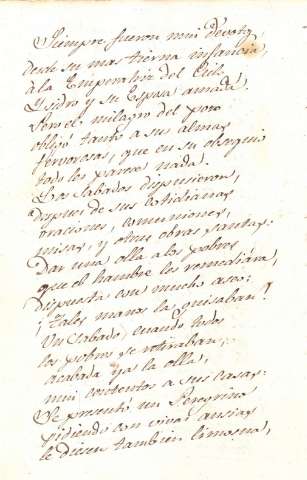 Siempre fueron mui devotos
desde su mas tierna infancia,
à la Emperatriz del Cielo
Ysidro y su Esposa amada.
Pero el milagro del pozo
obligó tanto a sus almas
fervorosas, que en su obsequio
todo les parece nada.
Los Sabados dispusieron,
despues de sus cotidianas
oraciones, comuniones,
misas, y otras obras santas:
Dar una olla a los pobres
que el hambre les remediára,
dispuesta con mucho aseo:
¡Tales manos la guisaban!
Un Sabado, cuando todos
los pobres se retiraban,
acabada ya la olla,
mui contentos a sus casas:
Se presentó un Peregrino
pidiendo con vivas ansias
le diesen tambien limosna,